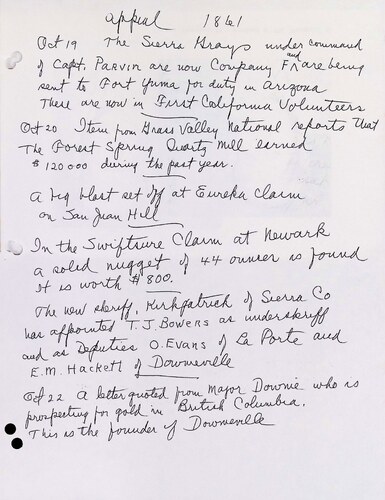 appeal 1861
Oct 19 The Sierra Grays under command
of Capt. Parvin are now Company F and are being
sent to Fort Yuma for duty in Arizona
There are now in First California Volunteers
Oct 20 Item from Grass Valley National reports that
The Forest Spring Quartz Mill earned
$120000 during the past year.
A big blast set off at Eureka Claim
on San Juan Hill
In the Swiftsure Claim at Newark
a solid nugget of 44 ounces is found
It is worth $800.
The new sheriff, Kirkpatrick of Sierra Co
has appointed T.J. Bowers as undersheriff
and as Deputies O. Evans of La Porte and
E.M. Hackett of Downieville
Oct 22 A letter quoted from Major Downie who is
prospecting for gold in British Columbia.
This is the founder of Downieville